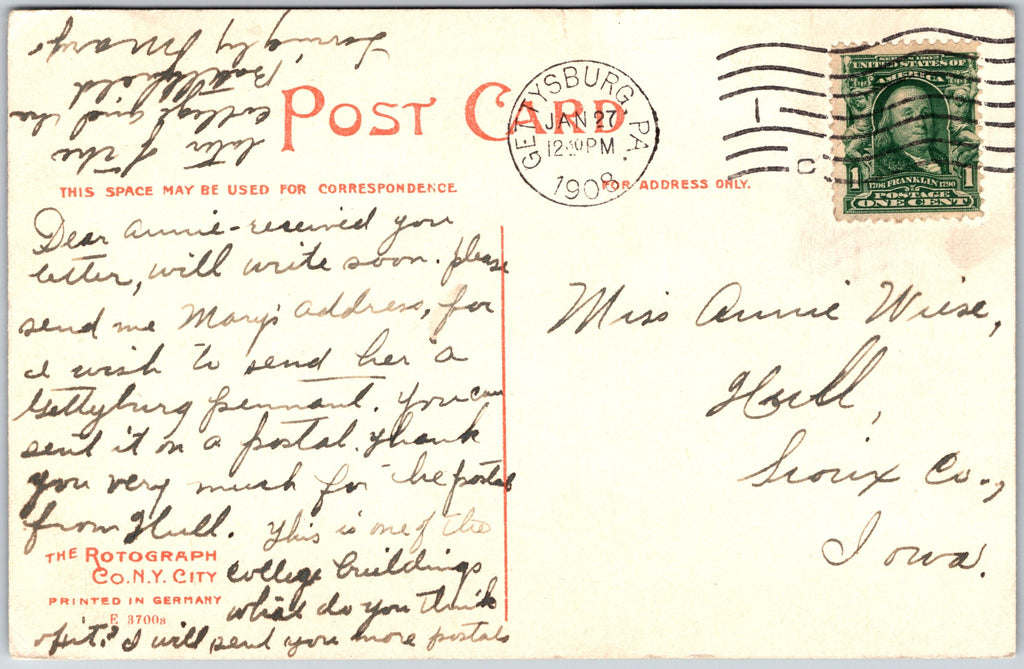 POST CARD
THIS SPACE MAY BE USED FOR CORRESPONDENCE
FOR ADDRESS ONLY.
GETTYSBURG, PA.
JAN 27
12 30 PM
1908
1
SERIES 1902
UNITED STATES OF
AMERICA
1 1
1706 FRANKLIN 1790
POSTAGE
ONE CENT
Dear Annie - received you
letter, will write soon. please
send me Mary's address, for
I wish to send her a
Gettyburg pennant. You can
send it on a postal. Thank
you very much for the postal
from Hull. This is one of the
college buildings
what do you think
of it? I will send you more postals
later of the
college and the
Battlefield
Mary.
THE ROTOGRAPH
CO. N.Y. CITY
PRINTED IN GERMANY
E 3700a
Miss Annie Wiese,
Hull,
Sioux Co.,
Iowa.